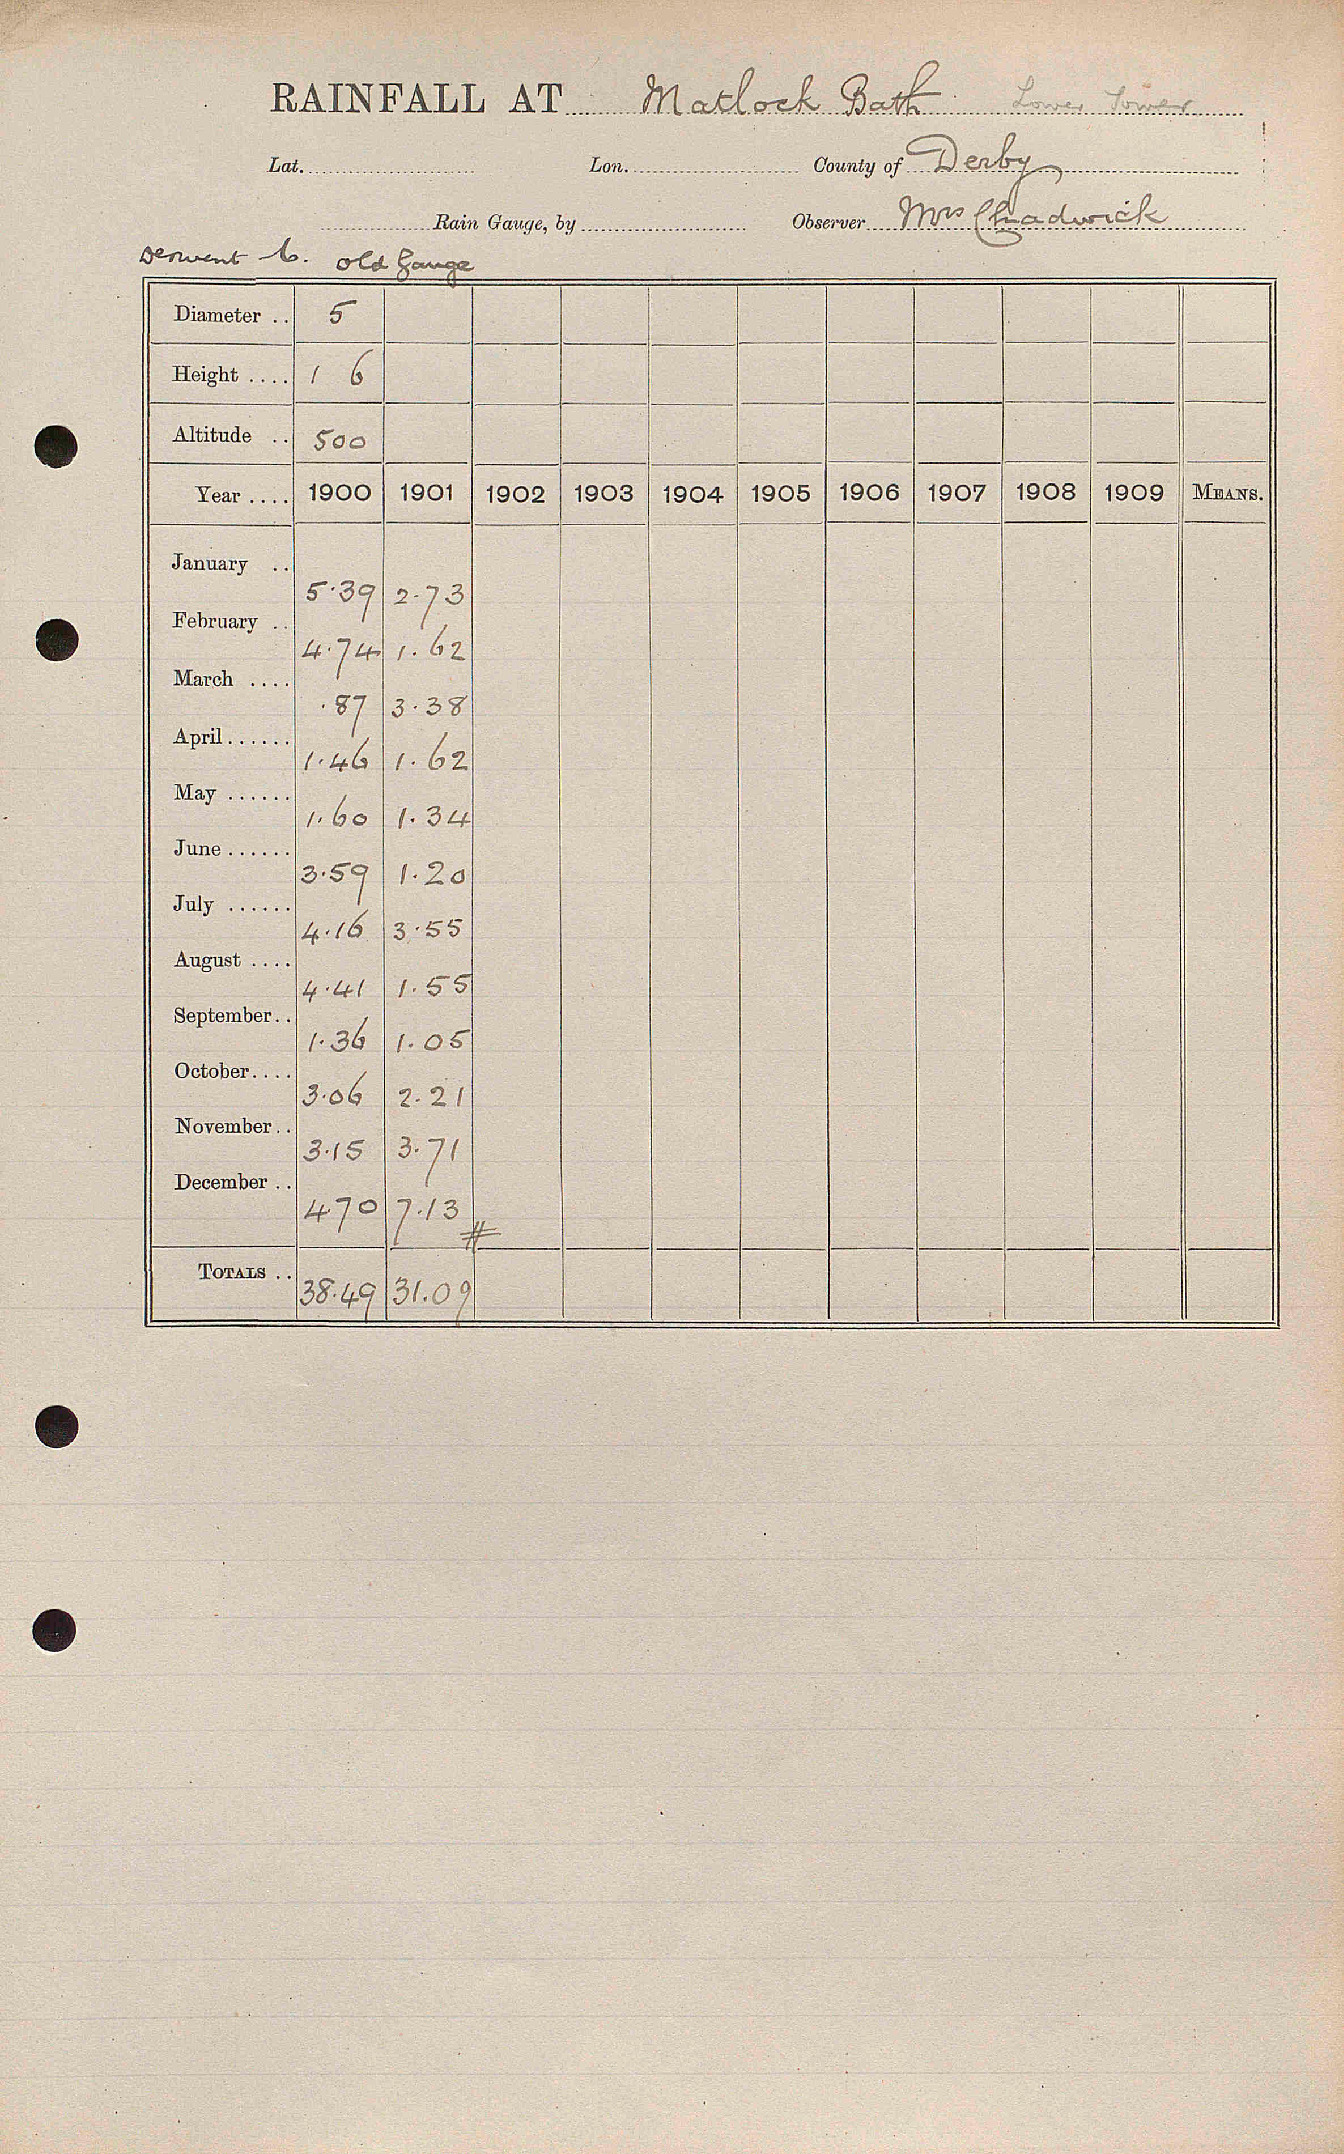 RAINFALL AT Matlock Bath Lower Tower
Lat. Lon. County of Derby
Rain Gauge, by Observer Mrs Chadwick
Derwent old Gauge
Diameter .. 5
Height .... 1 6
Altitude .. 500
Year .... 1900 1901 1902 1903 1904 1905 1906 1907 1908 1909 MEANS.
January .. 5.39 2.73
February .. 4.74 1.62
March .... .87 3.38
April...... 1.46 1.62
May ...... 1.60 1.34
June...... 3.59 1.20
July ...... 4.16 3.55
August .... 4.41 1.55
September.. 1.36 1.05
October.... 3.06 2.21
November.. 3.15 3.71
December .. 4.70 7.13 #
TOTALS .. 38.49 31.09